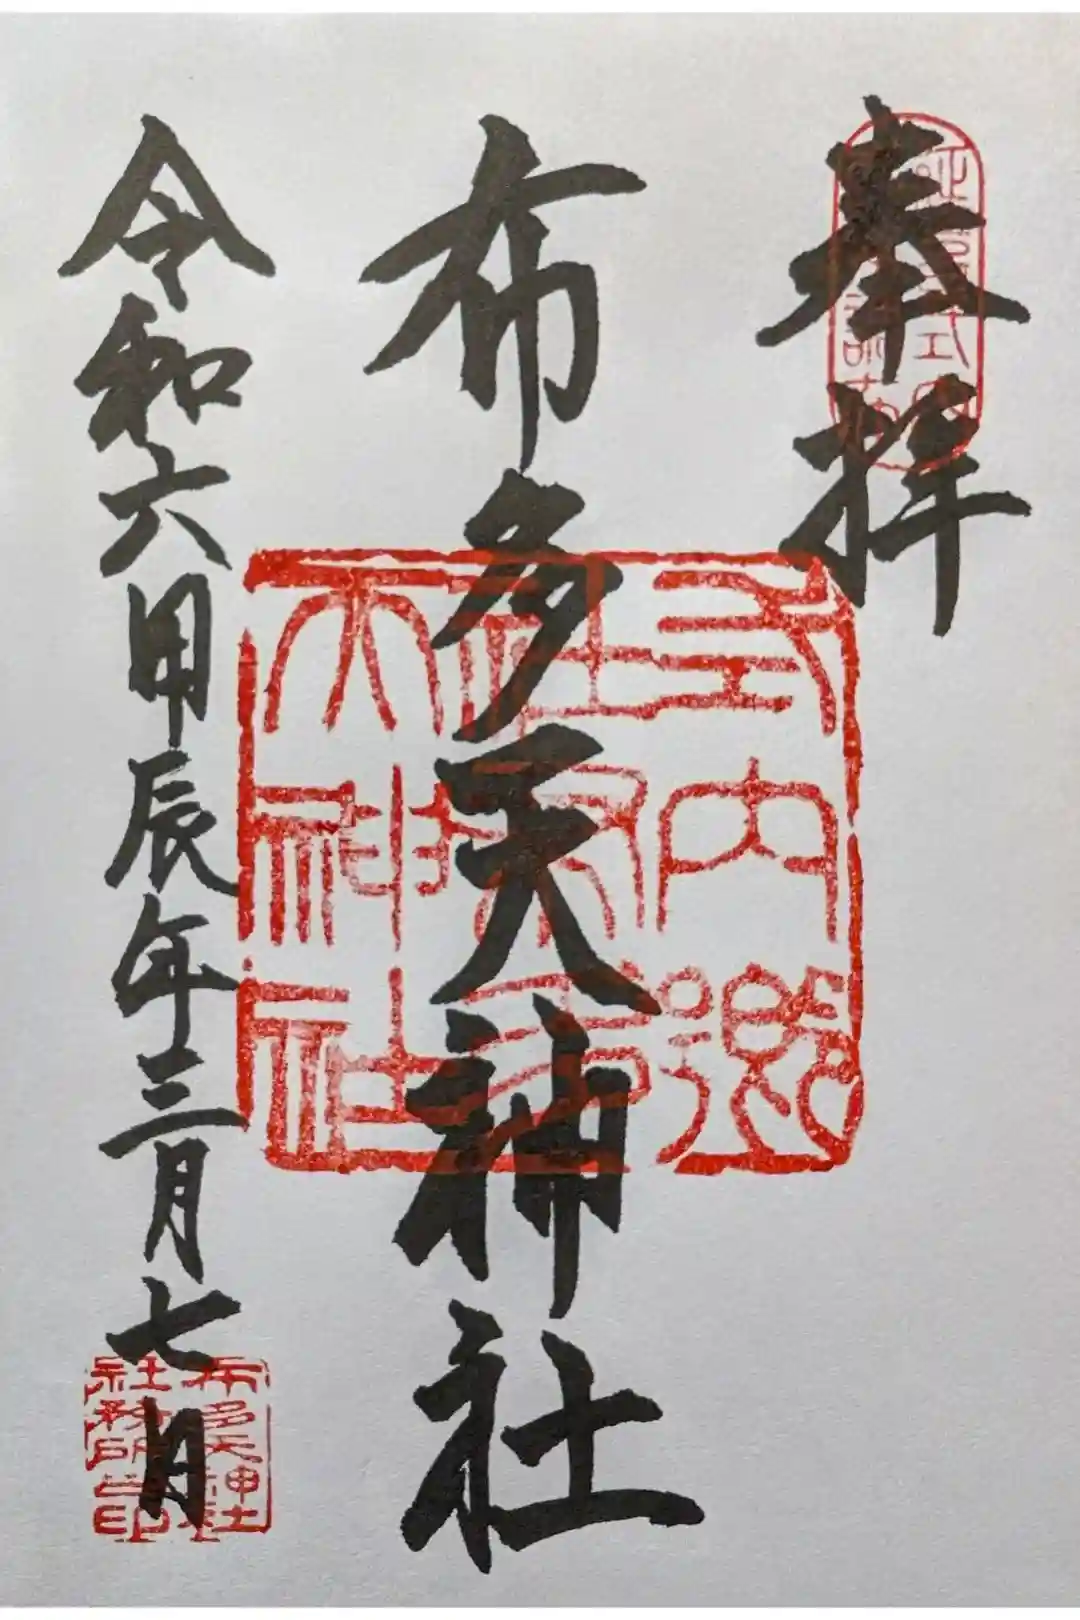 奉拝
延喜式内
布多天神社
式内郷
社布多
天神社
令和六甲辰年三月七日
布多天神社
社務所之印